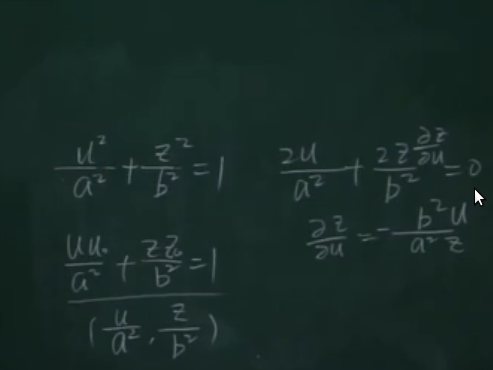 u²/a² + z²/b² = 1
2u/a² + 2z ∂z/∂u / b² = 0
∂z/∂u = - b²u / a²z
uu₀/a² + zz₀/b² = 1
(u/a², z/b²)